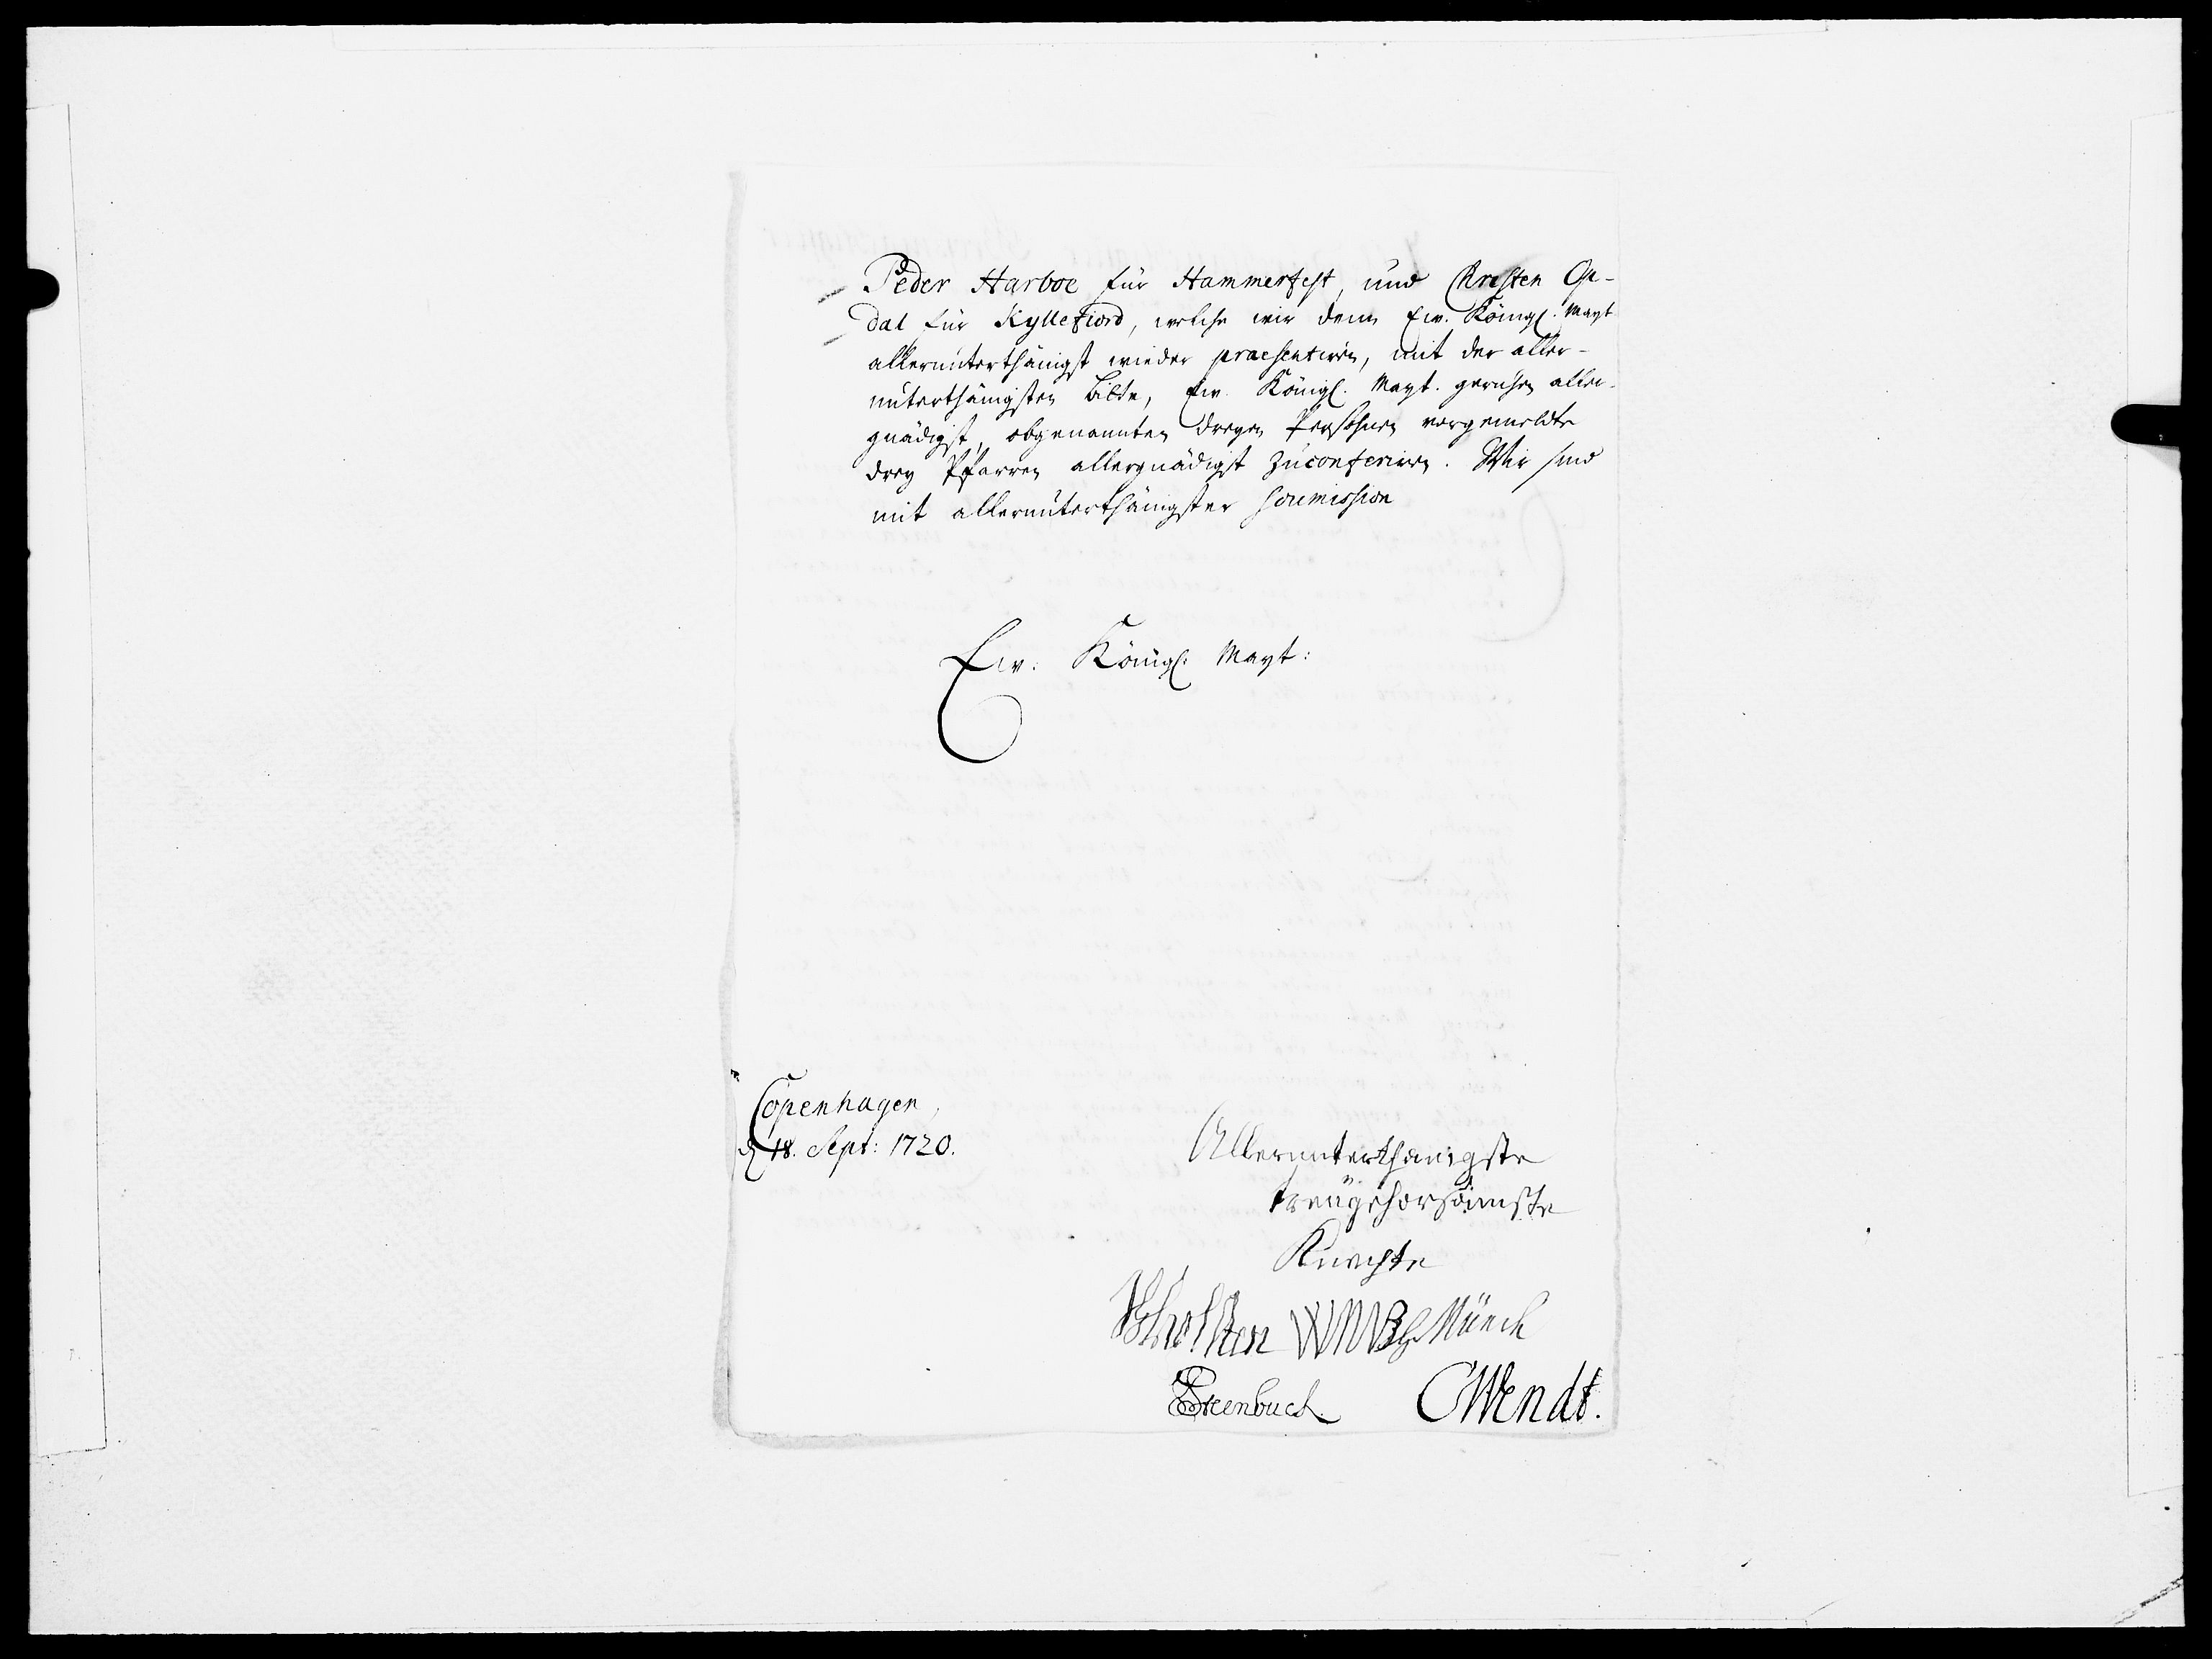 Peder Harboe für Hammerfest, und Christen Op-
dal für Kyllefiord, welche wir denn Ew. Königl. Mayt
allerunterthänigst wieder praesentiren, mit der aller-
unterthänigsten bitte, Ew. Königl. Mayt. geruhen aller-
gnädigst, obgenannten dreyen Persohnen vorgemeldte
drey Pfarren allergnädigst zuconferiren. Wir sind
mit allerunterthänigster soumission
Ew: Königl: Mayt:
Copenhagen,
d 18. Sept: 1720.
Allerunterthänigste
treügehorsamste
Knechte
Vholsten Münch
Steenbuch. CWendt.